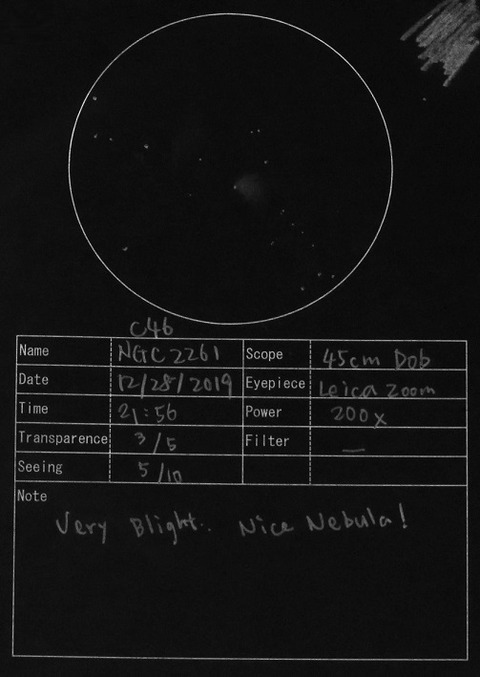 C46
Name NGC 2261 Scope 45cm Dob
Date 12/28/2019 Eyepiece Leica Zoom
Time 21:56 Power 200x
Transparence 3/5 Filter —
Seeing 5/10
Note
Very Blight.. Nice Nebula!